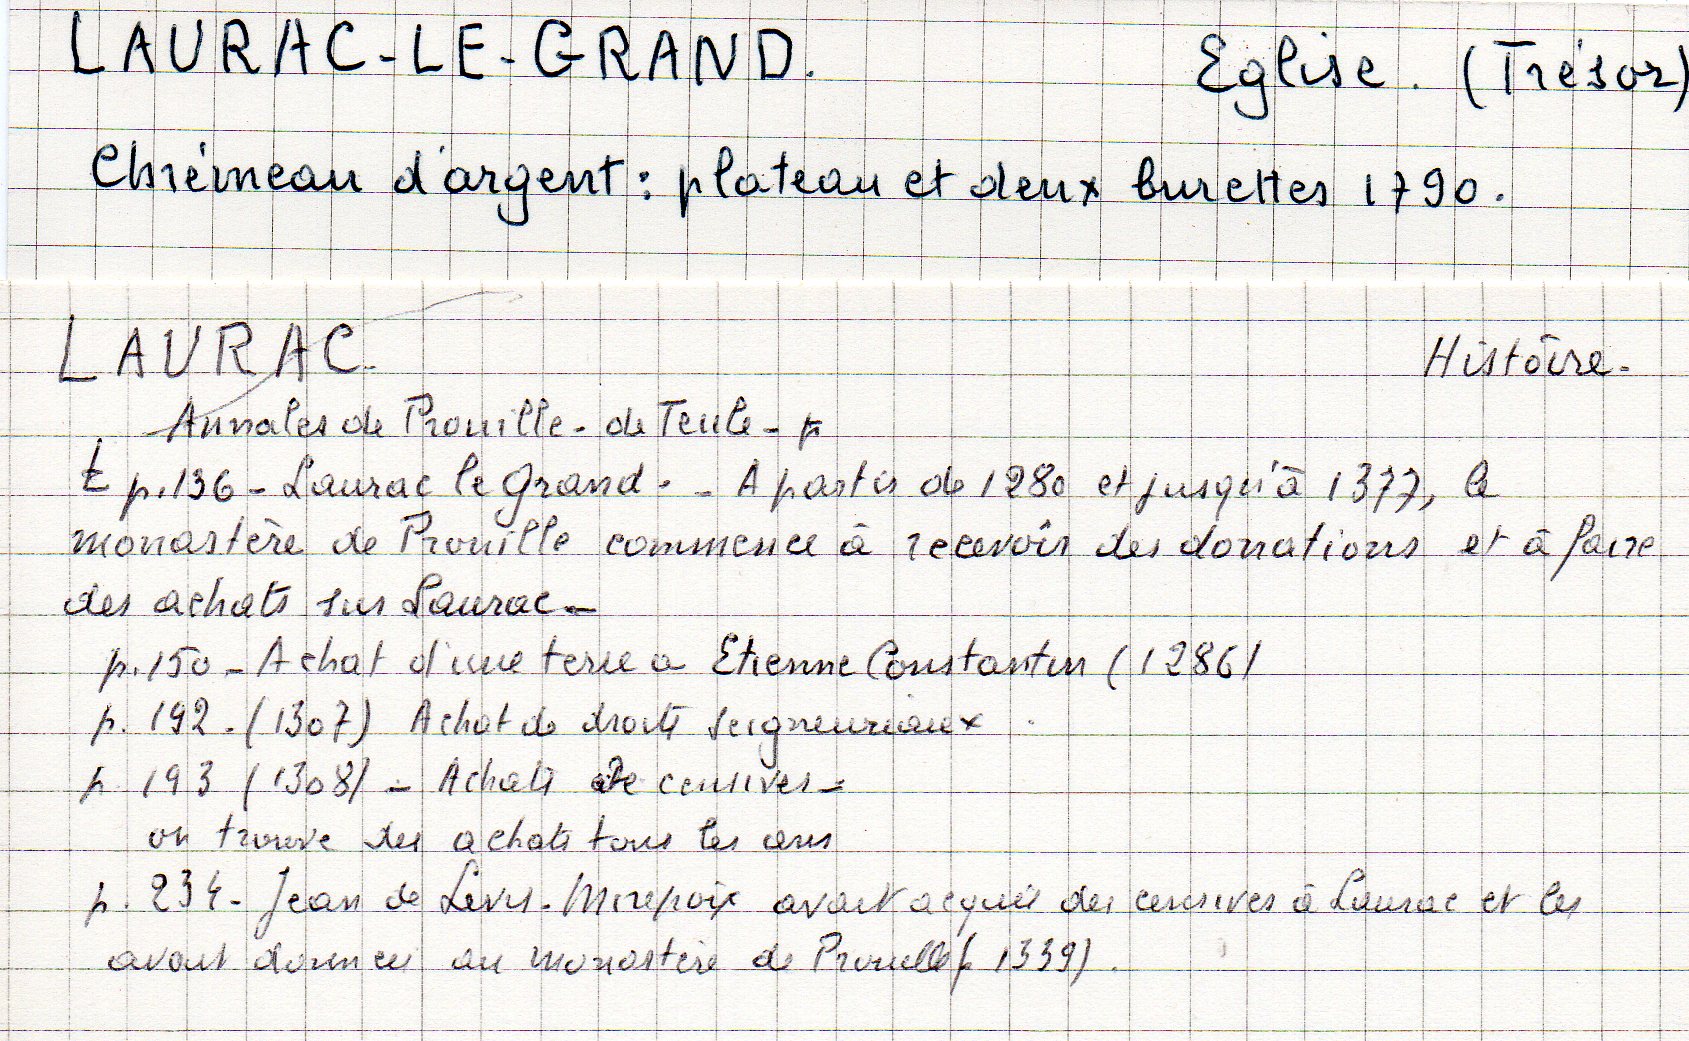 LAURAC-LE-GRAND. Eglise. (Trésor)
Chrémeau d'argent : plateau et deux burettes 1790.
LAURAC. Histoire.
Annales de Prouille - de Teule - p
t p.136 - Laurac le Grand. - A partir de 1280 et jusqu'à 1377, le
monastère de Prouille commence à recevoir des donations et à faire
des achats sur Laurac -
p.150 - Achat d'une terre a Etienne Constantin (1286)
p. 192 - (1307) Achat de droits seigneuriaux.
p. 193 (1308) - Achats de censives -
on trouve des achats tous les ans
p. 234 - Jean de Levis-Mirepoix avait acquis des censives à Laurac et les
avait données au monastère de Prouille (1339).